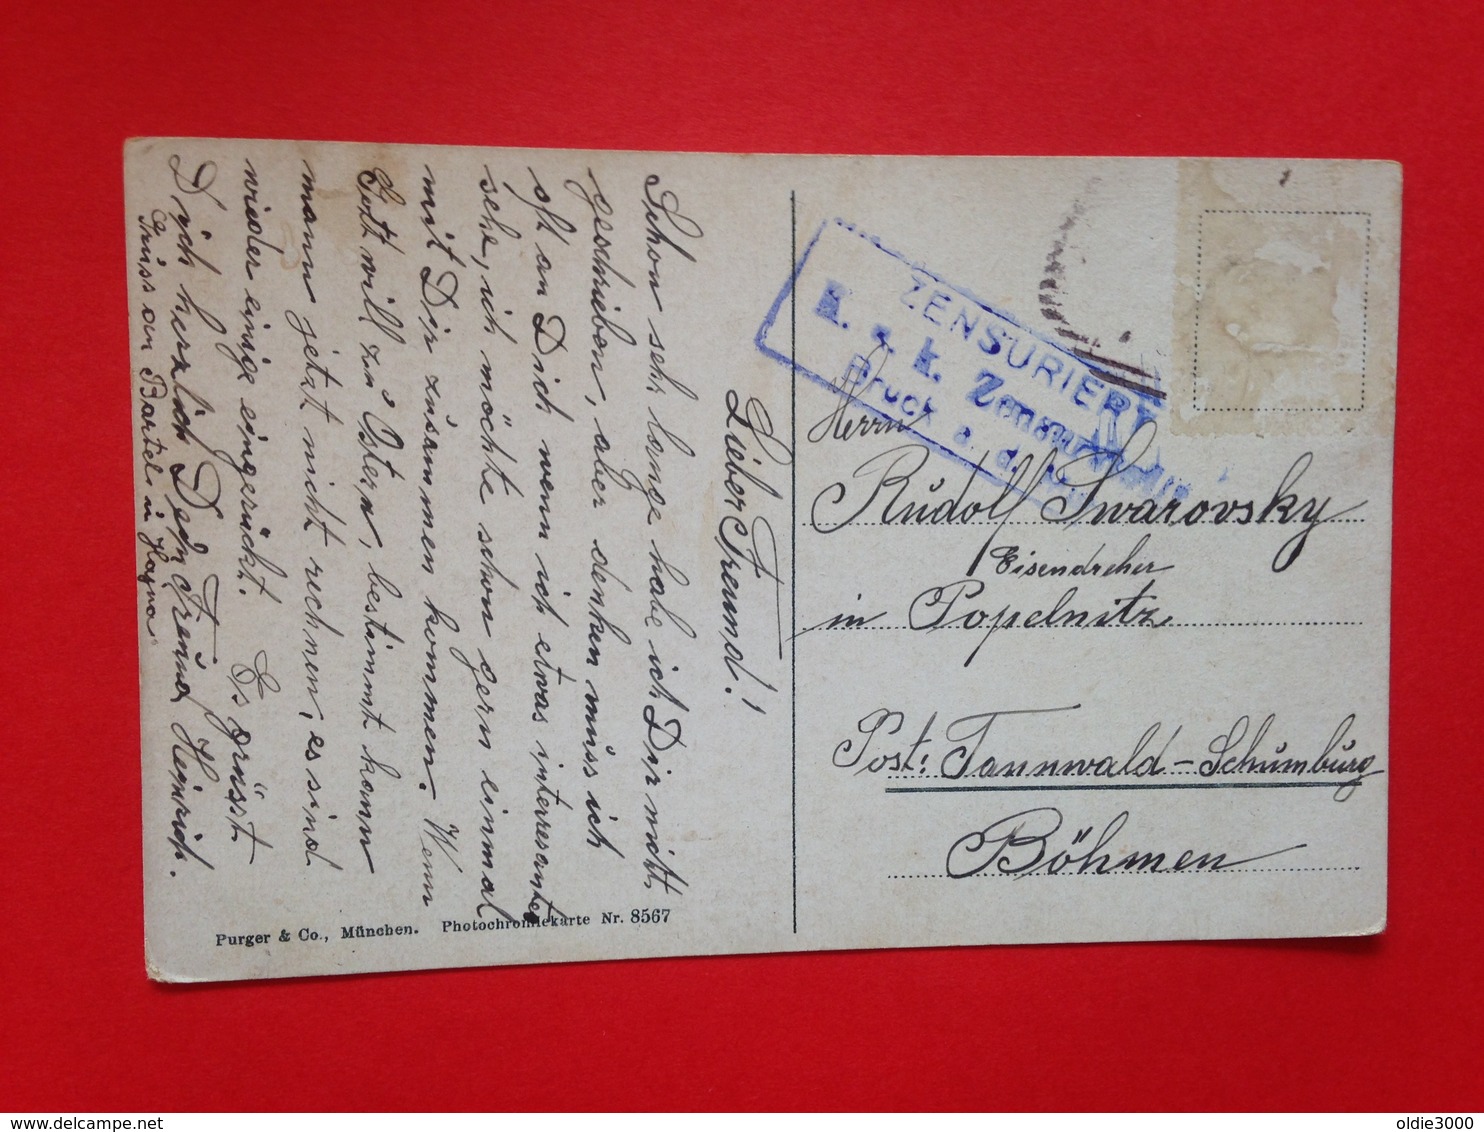 Lieber Freund!
Schon sehr lange habe ich Dir nicht
geschrieben, aber denken muss ich
oft an Dich wenn ich etwas interresantes
sehe, ich möchte schon gern einmal
mit Dir zusammen kommen. Wenn
Gott will zu Ostern, bestimmt kann
mann jetzt nicht rechnen, es sind
wieder einige eingerückt. Es grüsst
Dich herzlich Dein Freund Heinrich.
Gruss an Bartel in
Purger & Co., München. Photochromiekarte Nr. 8567
ZENSURIERT
K. u. k.
Bruck a. d.
Herrn
Rudolf Swarovsky
Eisendreher
in Popelnitz
Post: Tannwald-Schumburg
Böhmen
oldie3000
delcampe.net